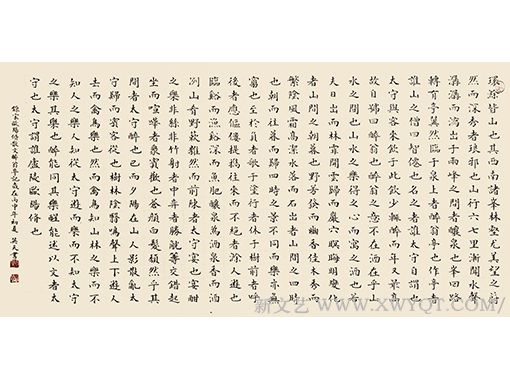 環滁皆山也其西南諸峯林壑尤美望之蔚
然而深秀者琅邪也山行六七里漸聞水聲
潺潺而瀉出于兩峰之間者釀泉也峯回路
轉有亭翼然臨于泉上者醉翁亭也作亭者
誰山之僧曰智僊也名之者誰太守自謂也
太守與客來飲于此飲少輒醉而年又最高
故自號曰醉翁也醉翁之意不在酒在乎山
水之間也山水之樂得之心而寓之酒也若
夫日出而林霏開雲歸而巖穴暝晦明變化
者山間之朝暮也野芳發而幽香佳木秀而
繁陰風霜高潔水落而石出者山間之四時
也朝而往暮而歸四時之景不同而樂亦無
窮也至於負者歌于塗行者休于樹前者呼
後者應傴僂提携往來而不絕者滁人遊也
臨谿而漁谿深而魚肥釀泉為酒泉香而酒
洌山肴野蔌雜然而前陳者太守宴也宴酣
之樂非絲非竹射者中弈者勝觥籌交錯起
坐而喧嘩者衆賓歡也蒼顏白髮頹然乎其
間者太守醉也已而夕陽在山人影散亂太
守歸而賓客從也樹林陰翳鳴聲上下遊人
去而禽鳥樂也然而禽鳥知山林之樂而不
知人之樂人知從太守遊而樂而不知太守
之樂其樂也醉能同其樂醒能述以文者太
守也太守謂誰廬陵歐陽脩也
錄宋歐陽脩散文醉翁亭記歲在丙申年初夏
新文艺 WWW.XWYQT.COM/